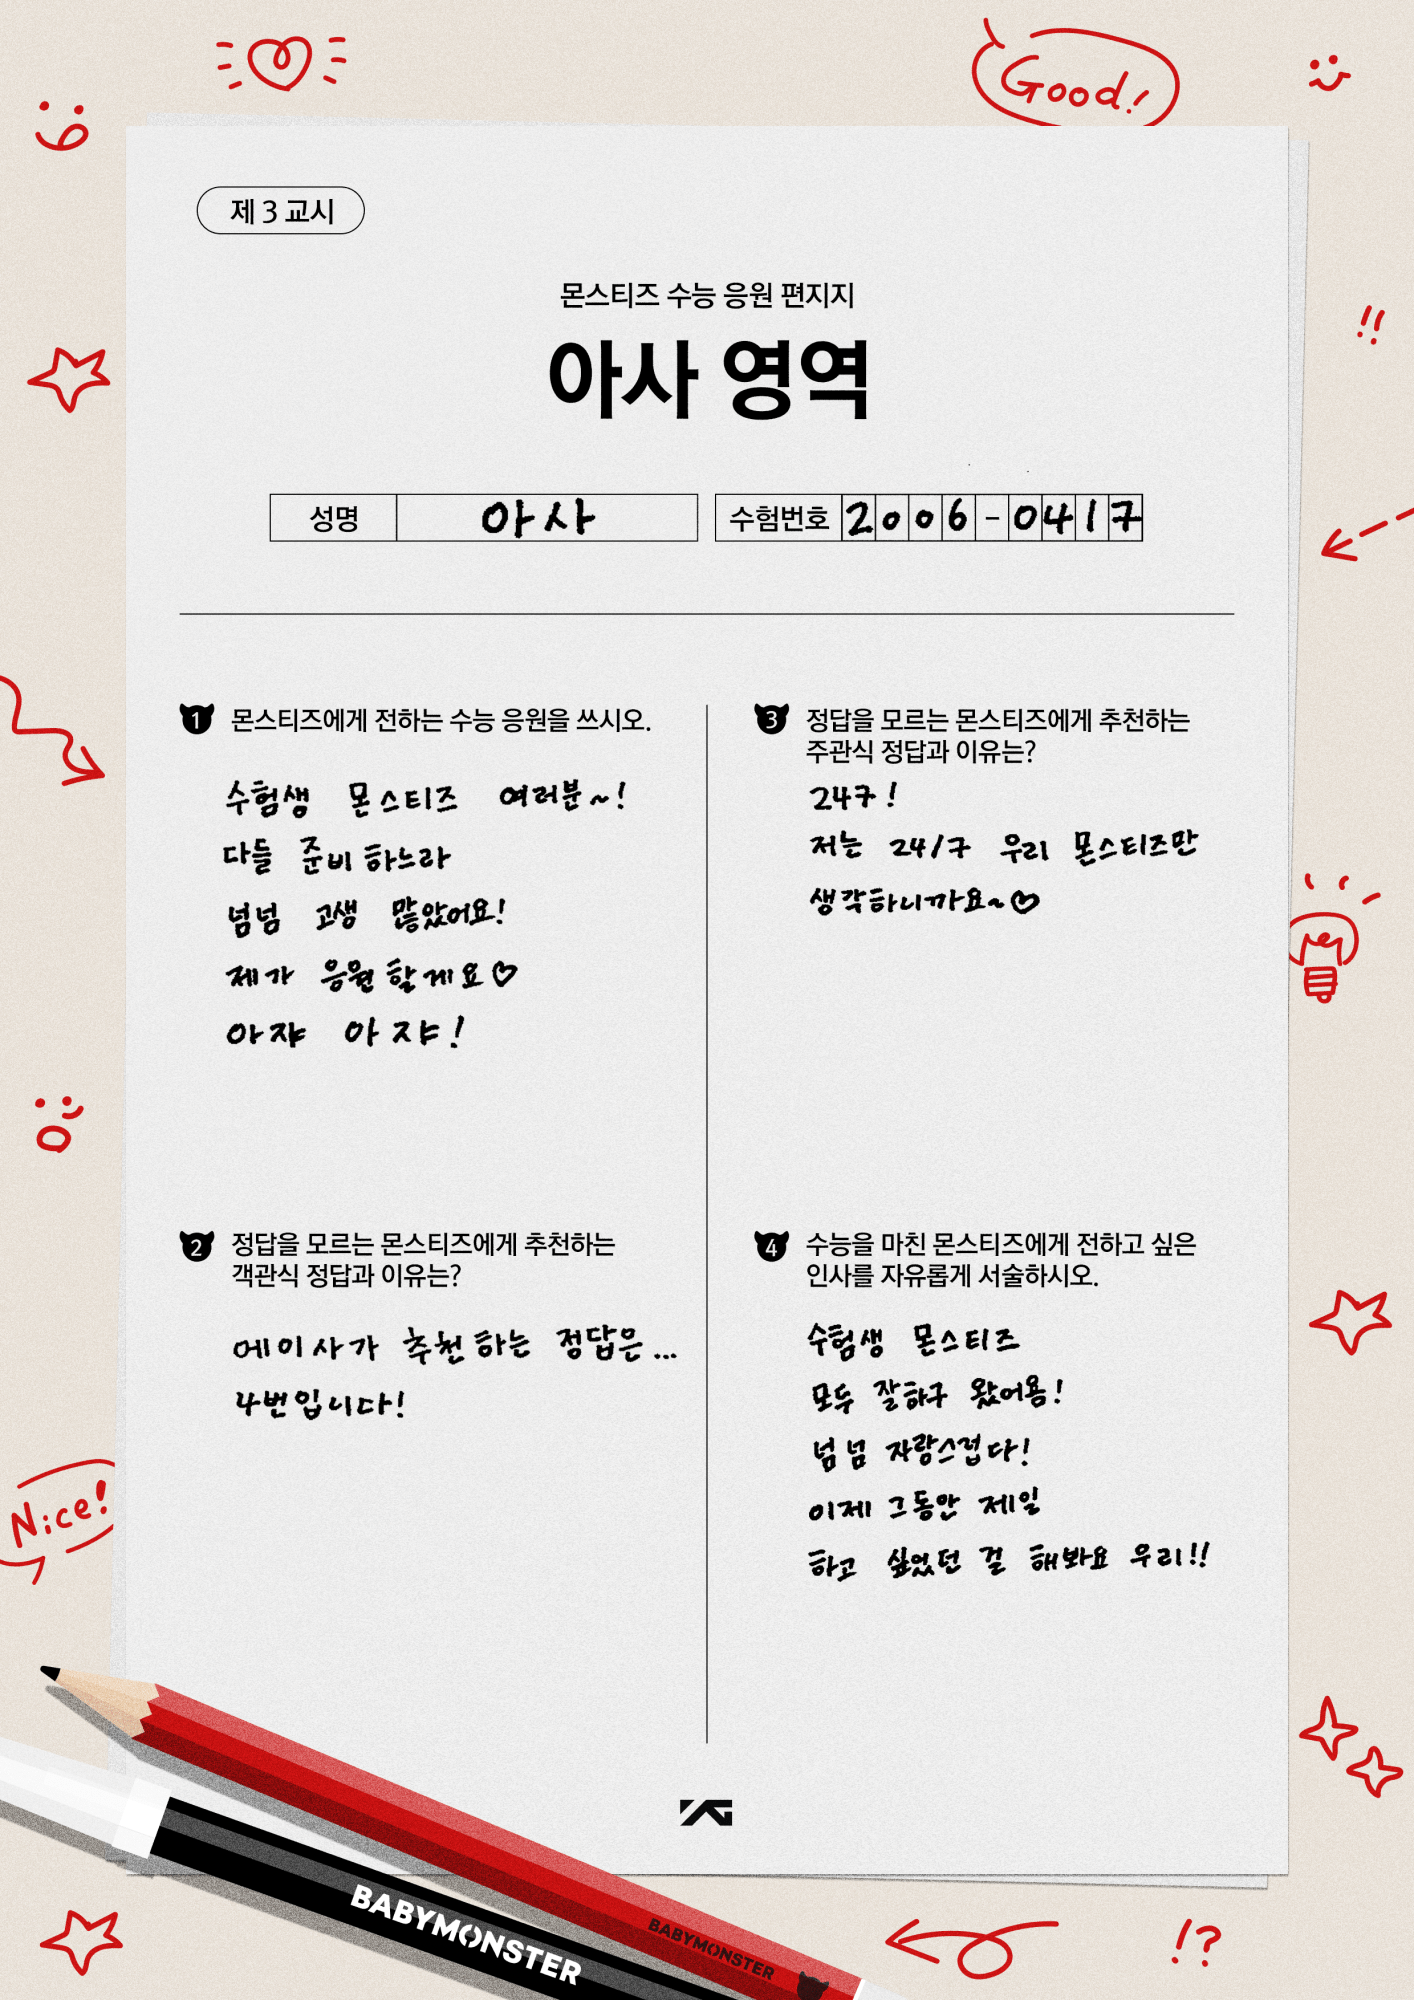 Good!
제 3 교시
몬스티즈 수능 응원 편지지
아사 영역
성명 아사 수험번호 2006-0417
1 몬스티즈에게 전하는 수능 응원을 쓰시오.
수험생 몬스티즈 여러분~!
다들 준비하느라
넘넘 고생 많았어요!
제가 응원할게요♡
아쟈 아쟈!
2 정답을 모르는 몬스티즈에게 추천하는
객관식 정답과 이유는?
에이사가 추천하는 정답은...
4번입니다!
3 정답을 모르는 몬스티즈에게 추천하는
주관식 정답과 이유는?
247!
저는 24/7 우리 몬스티즈만
생각하니까요~♡
4 수능을 마친 몬스티즈에게 전하고 싶은
인사를 자유롭게 서술하시오.
수험생 몬스티즈
모두 잘하구 왔어욤!
넘넘 자랑스럽다!
이제 그동안 제일
하고 싶었던 걸 해봐요 우리!!
!!
Nice!
YG
BABYMONSTER
BABYMONSTER
!?